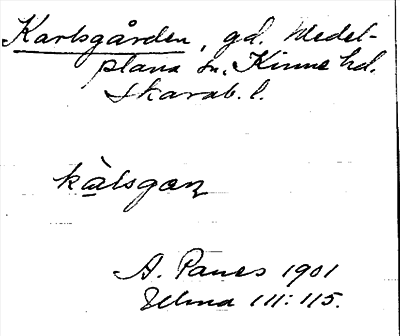 Karlsgården, gd. Medel-
plana sn. Kinne hd.
Skarab. l.
kàlsgaɳ
A. Panes 1901
111:115.